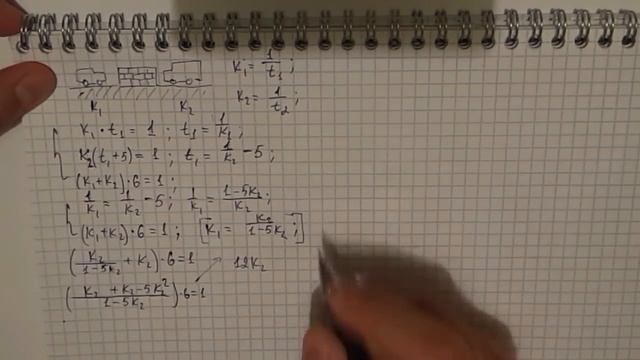 K₁ = 1/t₁ ;
K₂ = 1/t₂ ;
K₁ K₂
K₁ · t₁ = 1 ; t₁ = 1/K₁ ;
K₂(t₁+5) = 1 ; t₁ = 1/K₂ - 5 ;
(K₁+K₂)·6 = 1 ;
1/K₁ = 1/K₂ - 5 ; 1/K₁ = (1-5K₂)/K₂ ;
(K₁+K₂)·6 = 1 ; [K₁ = K₂/(1-5K₂) ;]
(K₂/(1-5K₂) + K₂)·6 = 1 12K₂
((K₂ + K₂ - 5K₂²)/(1-5K₂))·6 = 1